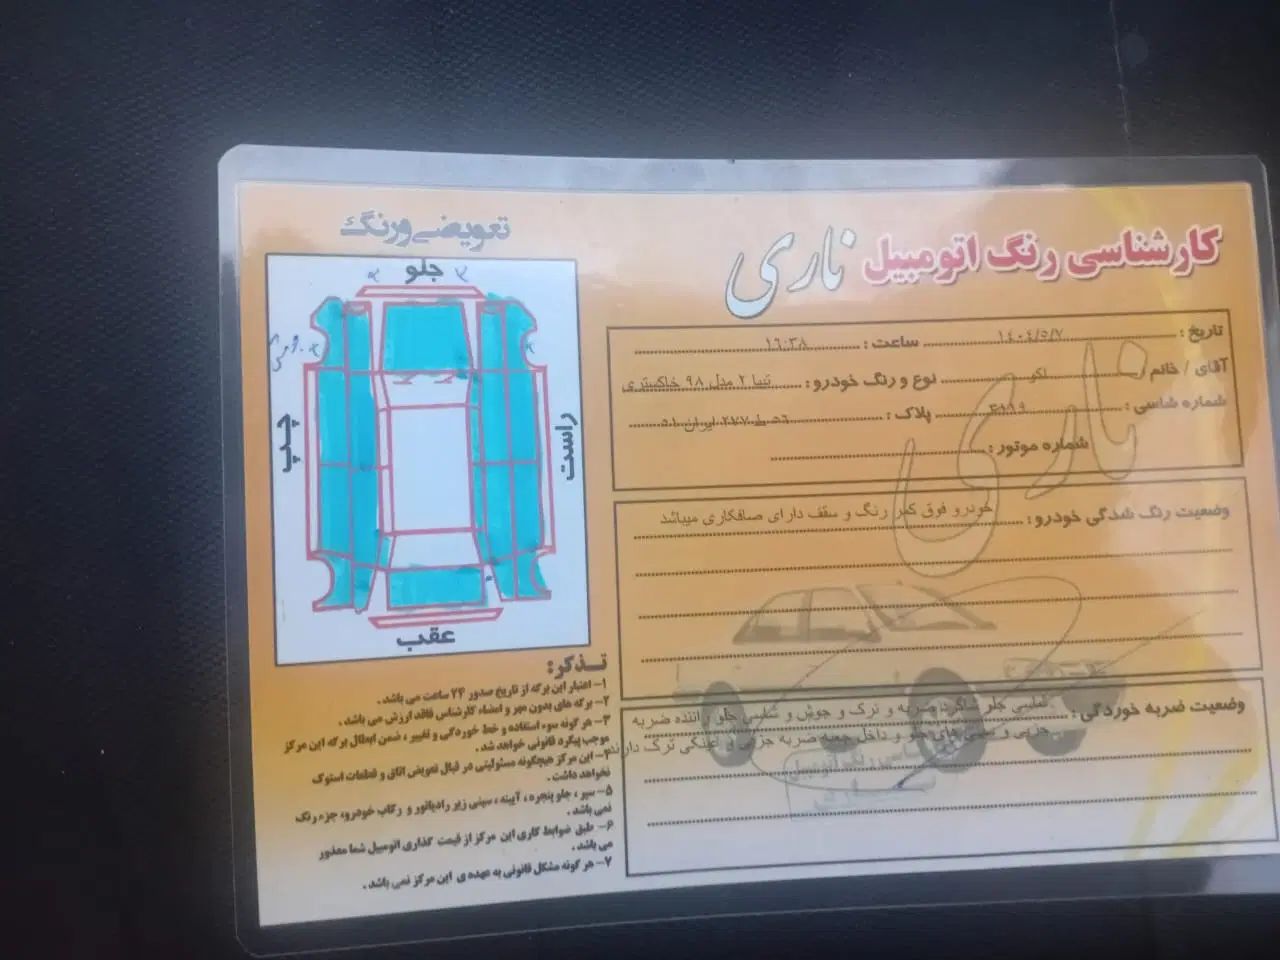 کارشناسی رنگ اتومبیل ناری
تاریخ : ۱۴۰۴/۵/۷ ساعت : ۱۶:۳۸
آقای / خانم : لکو نوع و رنگ خودرو : تیبا ۲ مدل ۹۸ خاکستری
شماره شاسی : پلاک : ۵۶ ط ۲۷۷ ایران ۵۱
شماره موتور :
وضعیت رنگ شدگی خودرو : خودرو فوق کمر رنگ و سقف دارای صافکاری میباشد
وضعیت ضربه خوردگی : شاسی جلو شاگرد ضربه و ترک و جوش و شاسی جلو راننده ضربه
جزیی و سینی های جلو و داخل جعبه ضربه جزیی و ترک دارند
ناری
تعویضی و رنگ
جلو
چپ
راست
عقب
تذکر :
۱- اعتبار این برگه از تاریخ صدور ۲۴ ساعت می باشد .
۲- برگه های بدون مهر و امضاء کارشناس فاقد ارزش می باشد .
۳- هر گونه سوء استفاده و خط خوردگی و تغییر ، ضمن ابطال برگه این مرکز
موجب پیگرد قانونی خواهد شد .
۴- این مرکز هیچگونه مسئولیتی در قبال تعویض اتاق و قطعات استوک
نخواهد داشت .
۵- سپر ، جلو پنجره ، آیینه ، سینی زیر رادیاتور و رکاب خودرو، جزء رنگ
نمی باشد .
۶- طبق ضوابط کاری این مرکز از قیمت گذاری اتومبیل شما معذور
می باشد .
۷- هر گونه مشکل قانونی به عهده ی این مرکز نمی باشد .